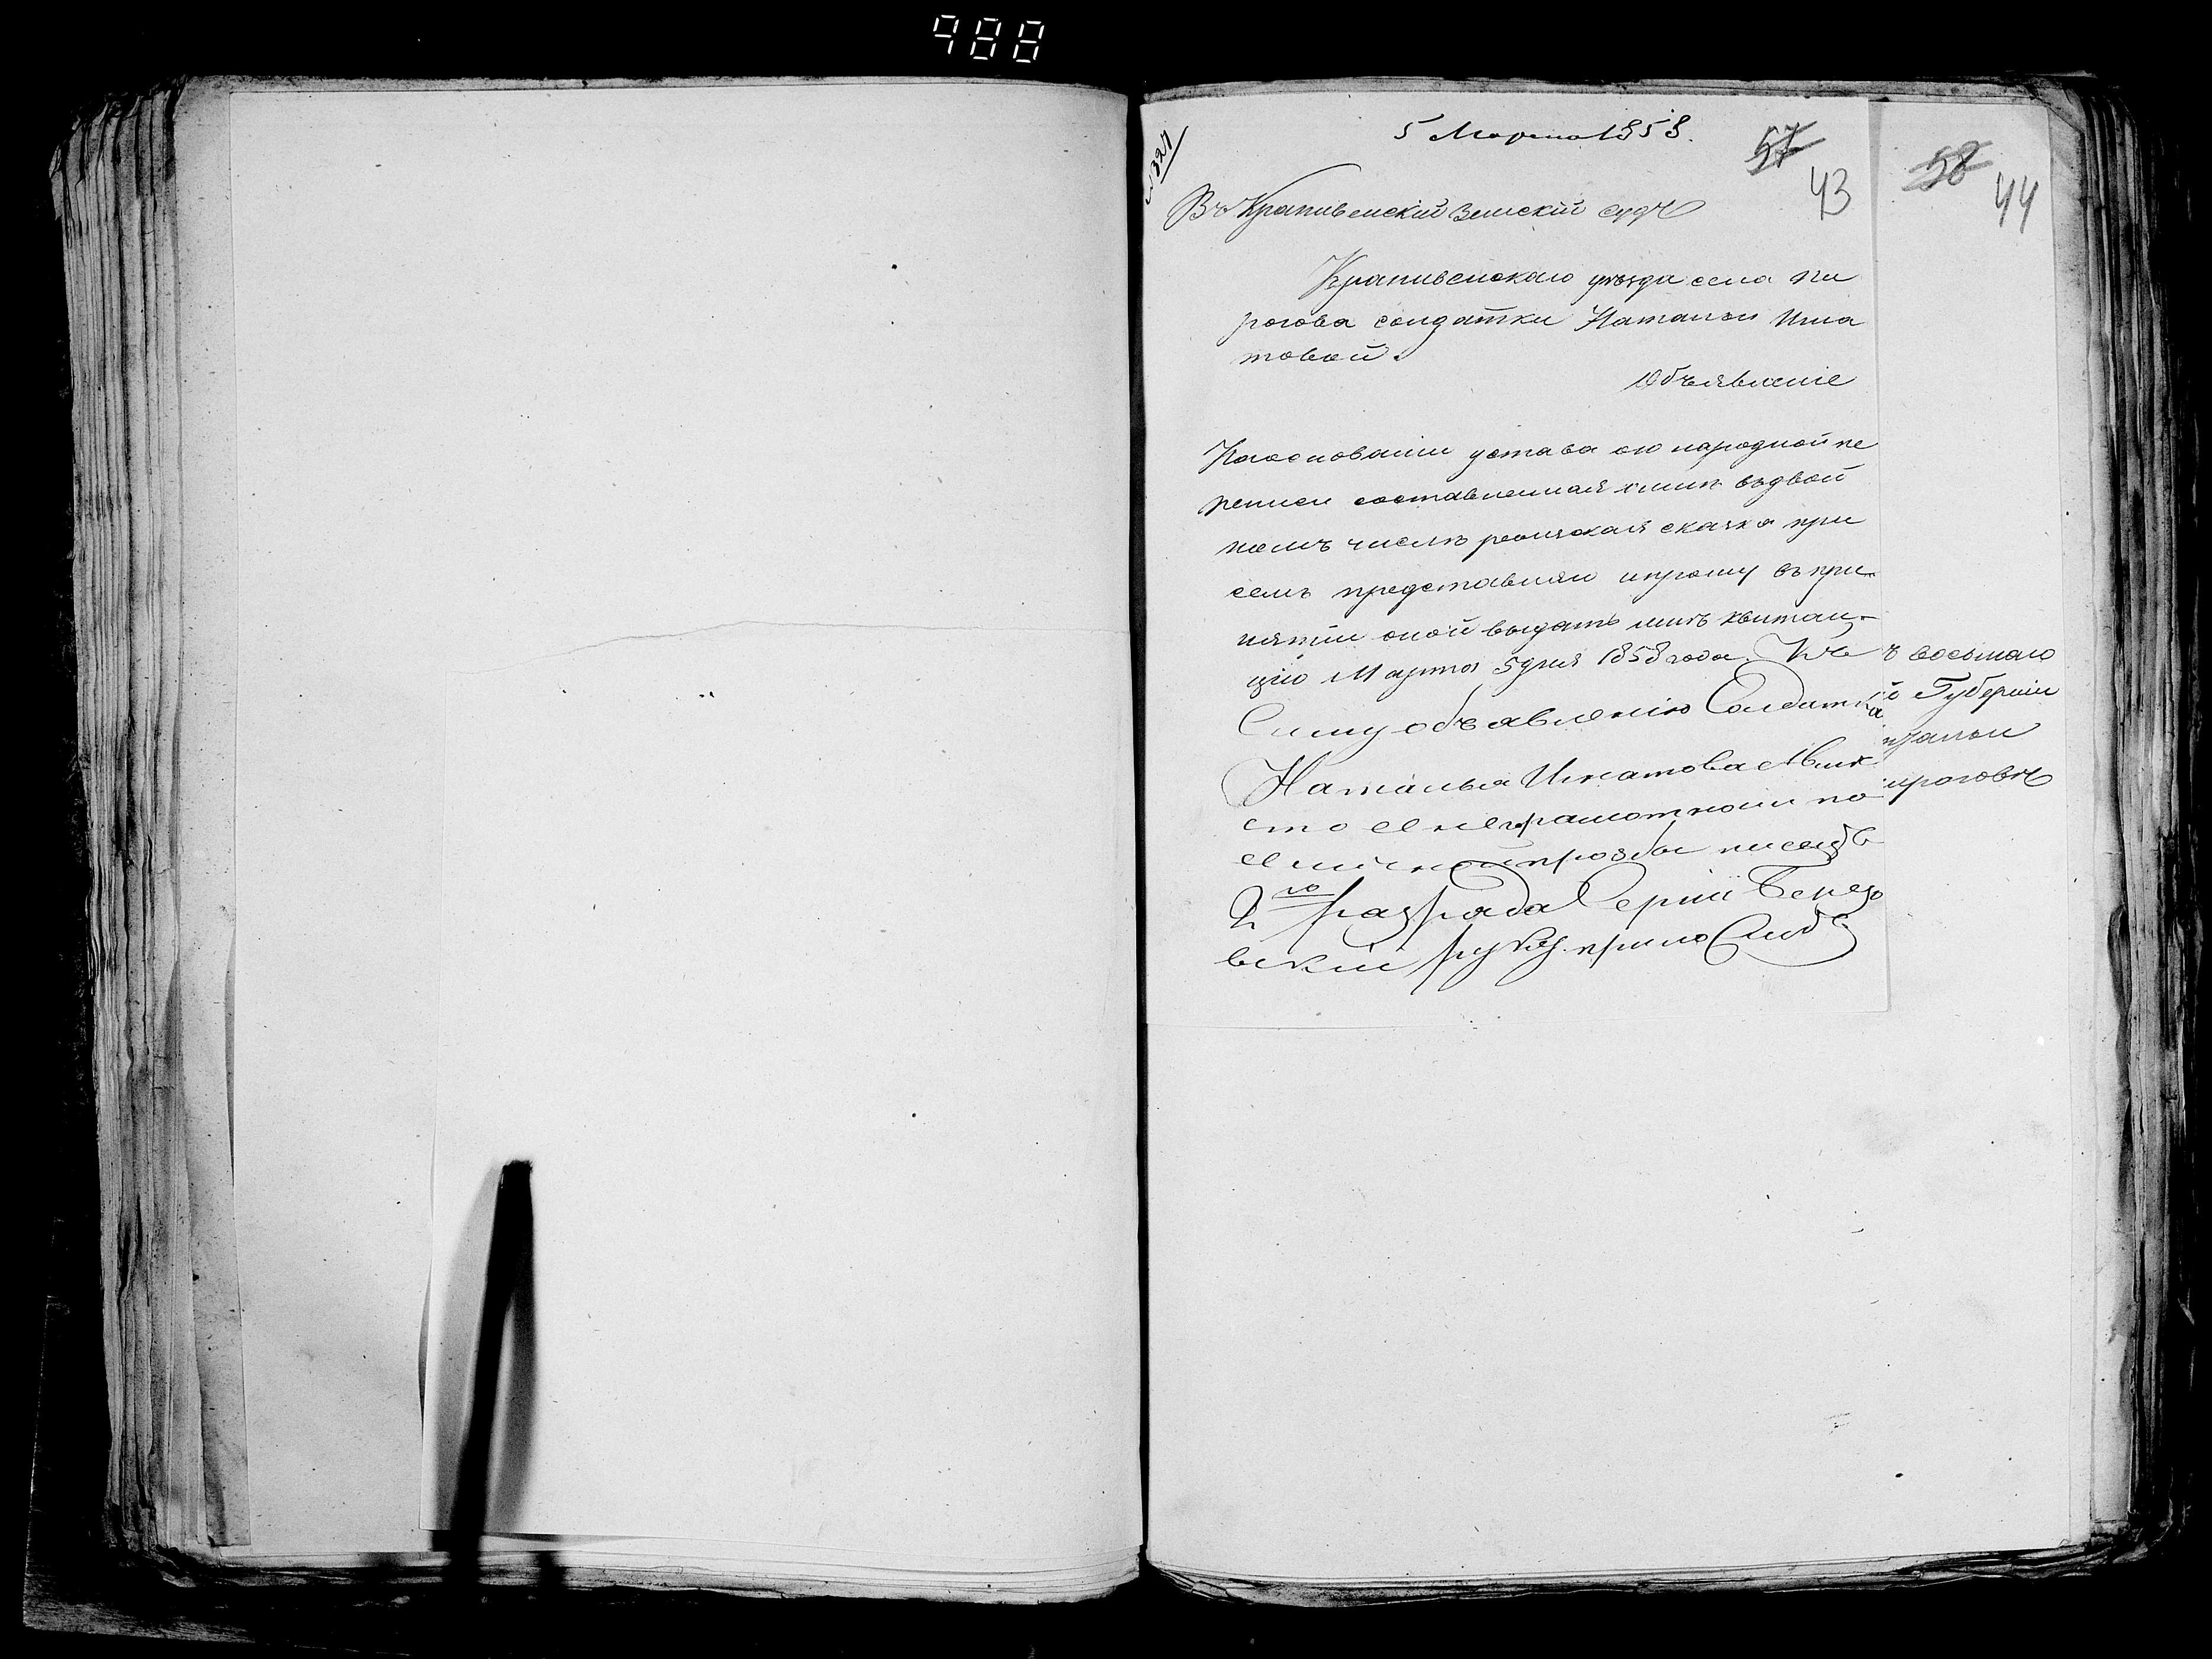 988
№ 327
5 Марта 1858.
57
43
58
44
Въ Крапивенскій Земскій судъ
Крапивенскаго уѣзда села Пи
рогова солдатки Натальи Игна
товой.
Объявленіе
На основаніи устава о народной пе
реписи составленная мною въ двой
номъ числѣ ревизская сказка при
семъ представляю и прошу въ при-
нятіи оной выдать мнѣ квитан-
цію Марта 5 дня 1858 года. Къ
Сему объявленію Солдатка
Наталья Игнатова а вмѣ
сто ее неграмотной по
ее личной прозбѣ писецъ
2го разряда Сергій
вскій руку приложилъ
ъ восьмаго
й Губерніи
тальи
ироговѣ